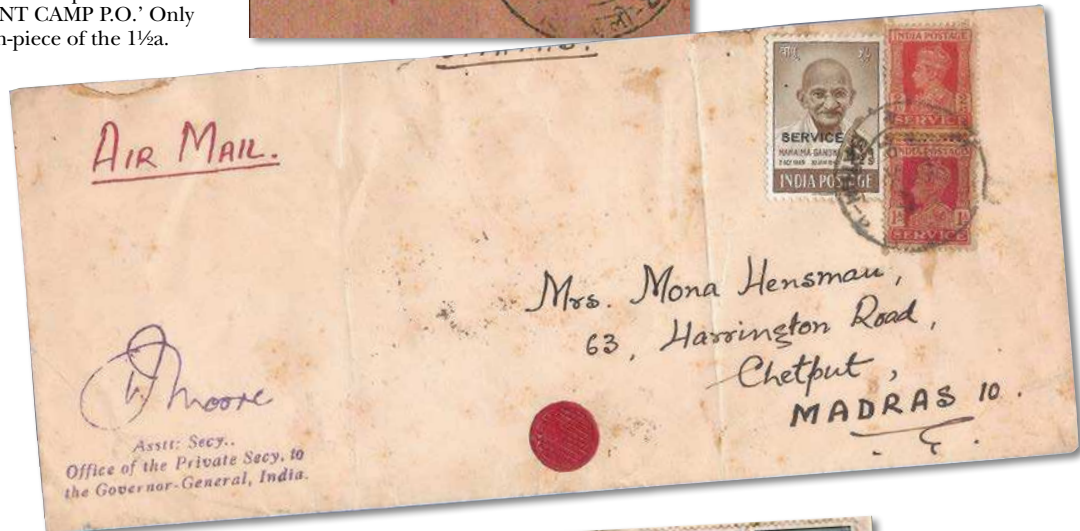 NT CAMP P.O.' Only
n-piece of the 1½a.
AIR MAIL.
बापू
SERVICE
MAHATMA GANDHI
INDIA POSTAGE
INDIA POSTAGE
SERVICE
INDIA POSTAGE
1ᴬ 1ᴬ
SERVICE
Mrs. Mona Hensman,
63, Harrington Road,
Chetput,
MADRAS 10.
Moore
Asstt: Secy..
Office of the Private Secy, to
the Governor-General, India.